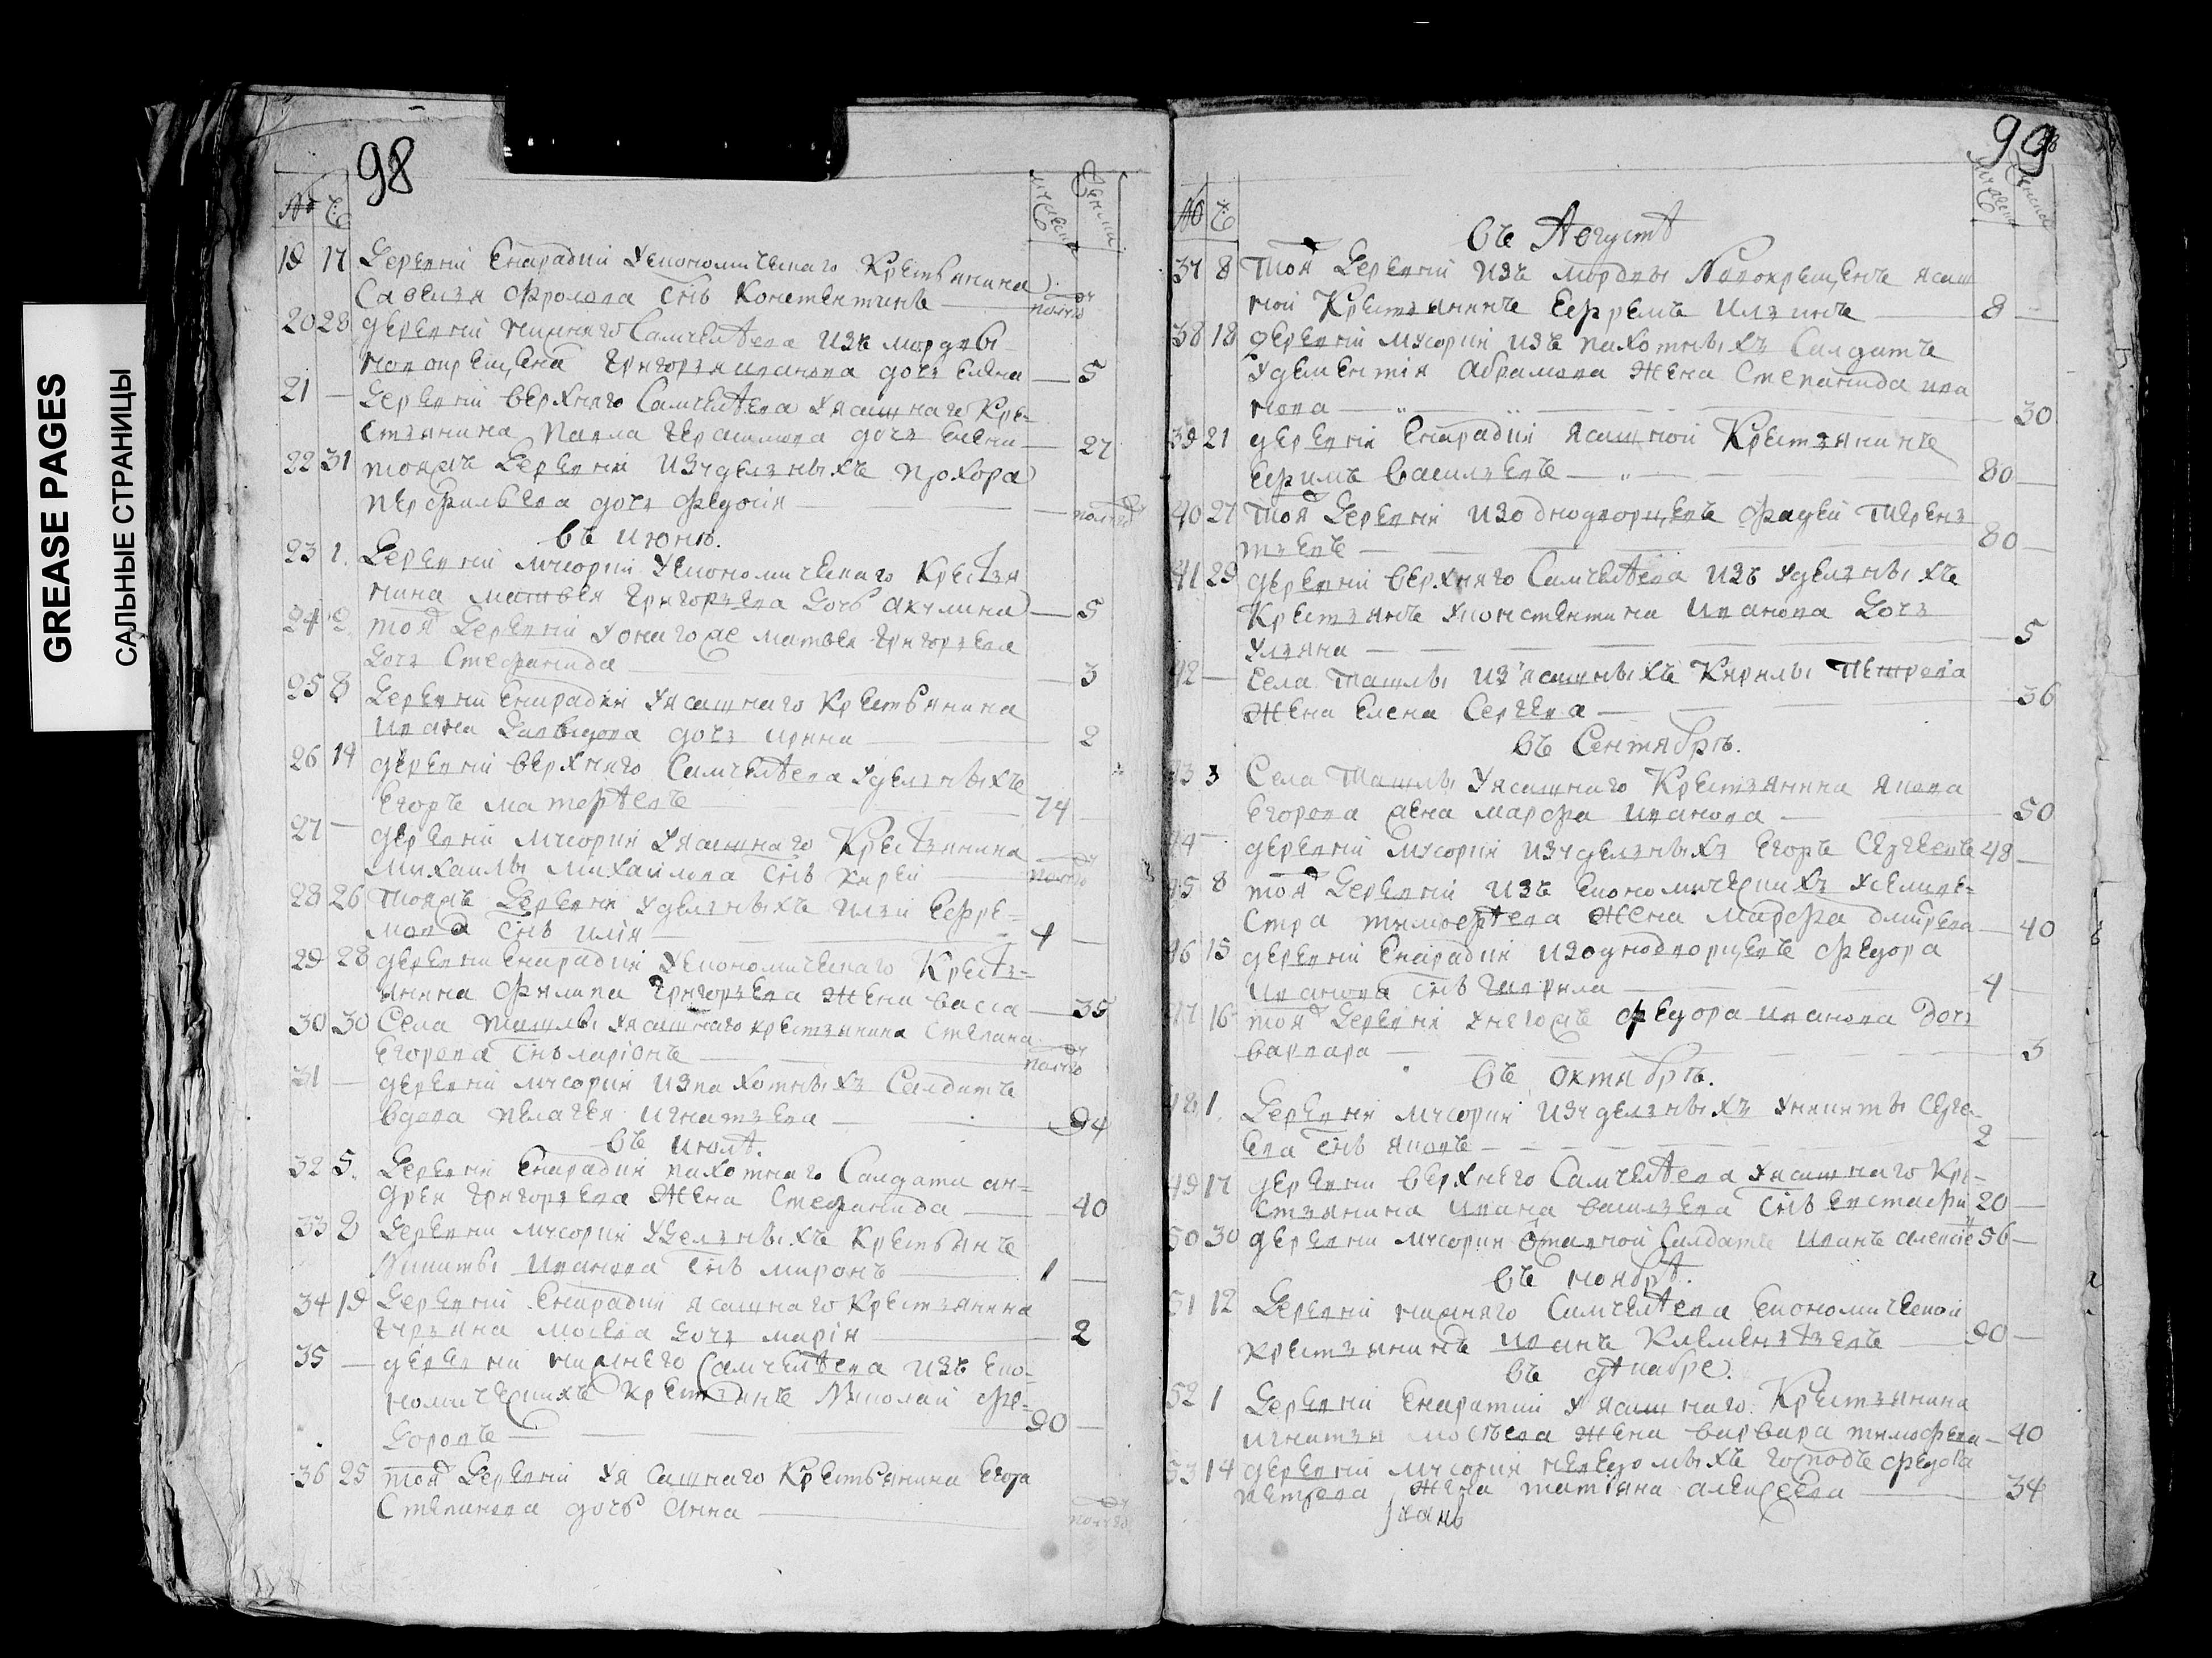 GREASE PAGES
САЛЬНЫЕ СТРАНИЦЫ
98
№
19 17 деревни Екарадни Уекономическаго Крестьянина
Савелья Фролова Снъ Константинъ полго
20 28 деревни нижняго Самчелѣева изъ мордвы
новокрещена Григорья иванова дочь елена 5
21 — деревни верхняго Самчелѣева Уясашнаго Кре=
стьянина павла дочь 27
22 31 тояжъ деревни изудельныхъ прохора
перфильева дочь федосия полго
въ июнѣ.
23 1. деревни мусорки Уекономическаго Крестья
нина матвея Григорьева дочь акулина 5
24 2 тояжъ деревни Уонагоже матвея Григорьева
дочь Стефанида 3
25 8 деревни Екарадни Уясашнаго Крестьянина
ивана давыдова дочь ирина 2
26 14 деревни верхняго Самчелѣева Удельныхъ
Егоръ матвѣевъ 74
27 — деревни мусорки Уясашнаго Крестьянина
Михаилы Михаилова Снъ полго
28 26 тояжъ деревни Удельныхъ ильи Ефре=
мова Снъ илия 4
29 28 деревни Екарадни Уекономическаго Кресть=
янина Филипа Григорьева жена васса 35
30 30 Села ташлы Уясашнаго крестьянина Степана
Егорова Снъ ларионъ полго
31 — деревни мусорки изпахотныхъ Салдатъ
вдова пелагея игнатьева 94
въ июлѣ.
32 5. деревни Екарадни пахотнаго Салдата ан=
дрея Григорьева жена Стефанида 40
33 8 деревни мусорки Уделныхъ Крестьянъ
Никиты Иванова Снъ миронъ 1
34 19 деревни Екарадни ясашнаго Крестьянина
дочь мария 2
35 — деревни нижнего Самчелѣева изъ Еко=
номическихъ Крестьянъ Николай фе=
доровъ 90
36 25 тояжъ деревни Уясашнаго Крестьянина Егора
Степанова дочь Анна полго
99
№
въ Августѣ
37 8 тояжъ деревни изъ мордвы Новокрещенъ ясаш
ной Крестьянинъ Ефремъ Ильинъ 8
38 18 деревни мусорки изъ пахотныхъ Салдатъ
Удементия Абрамова жена Степанида ива
нова 30
39 21 деревни Екарадни ясашной Крестьянинъ
Ефимъ васильевъ 80
40 27 тояжъ деревни изоднодворцевъ фадей терень
тьевъ 80
41 29 деревни верхняго Самчелѣева изъ Удельныхъ
Крестьянъ Уконстентина иванова дочь
Ульяна 5
42 — Села ташлы изъясашныхъ Кирилы петрова
жена Елена Сергева 36
въ Сентябрѣ.
43 3 Села ташлы Уясашнаго Крестьянина якова
Егорова жена марфа иванова 50
44 — деревни мусорки изудельныхъ Егоръ Сергеевъ 48
45 8 тояжъ деревни изъ Економическихъ Уселиве=
стра тимофѣева жена марфа 40
46 15 деревни Екарадни изоднодворцевъ федора
иванова снъ Гаврила 4
47 16 тояжъ деревни Унегожъ федора иванова дочь
варвара 3
въ октябрѣ.
48 1. деревни мусорки изудельныхъ Уникиты Серге=
ева снъ яковъ 2
49 17 деревни верхнего Самчелѣева Уясашнаго Кре=
стьянина ивана васильева Снъ Евстафи 20
50 30 деревни мусорки Отставной Салдатъ иванъ 56
въ ноябрѣ.
51 12 деревни нижняго Самчелѣева Економической
крестьянинъ иванъ Клементьевъ 90
въ дѣкабре.
52 1 деревни Екаратни Уясашнаго Крестьянина
игнатья жена варвара тимофева 40
53 14 деревни мусорки господъ федота
петрова жена татияна алексеева 34